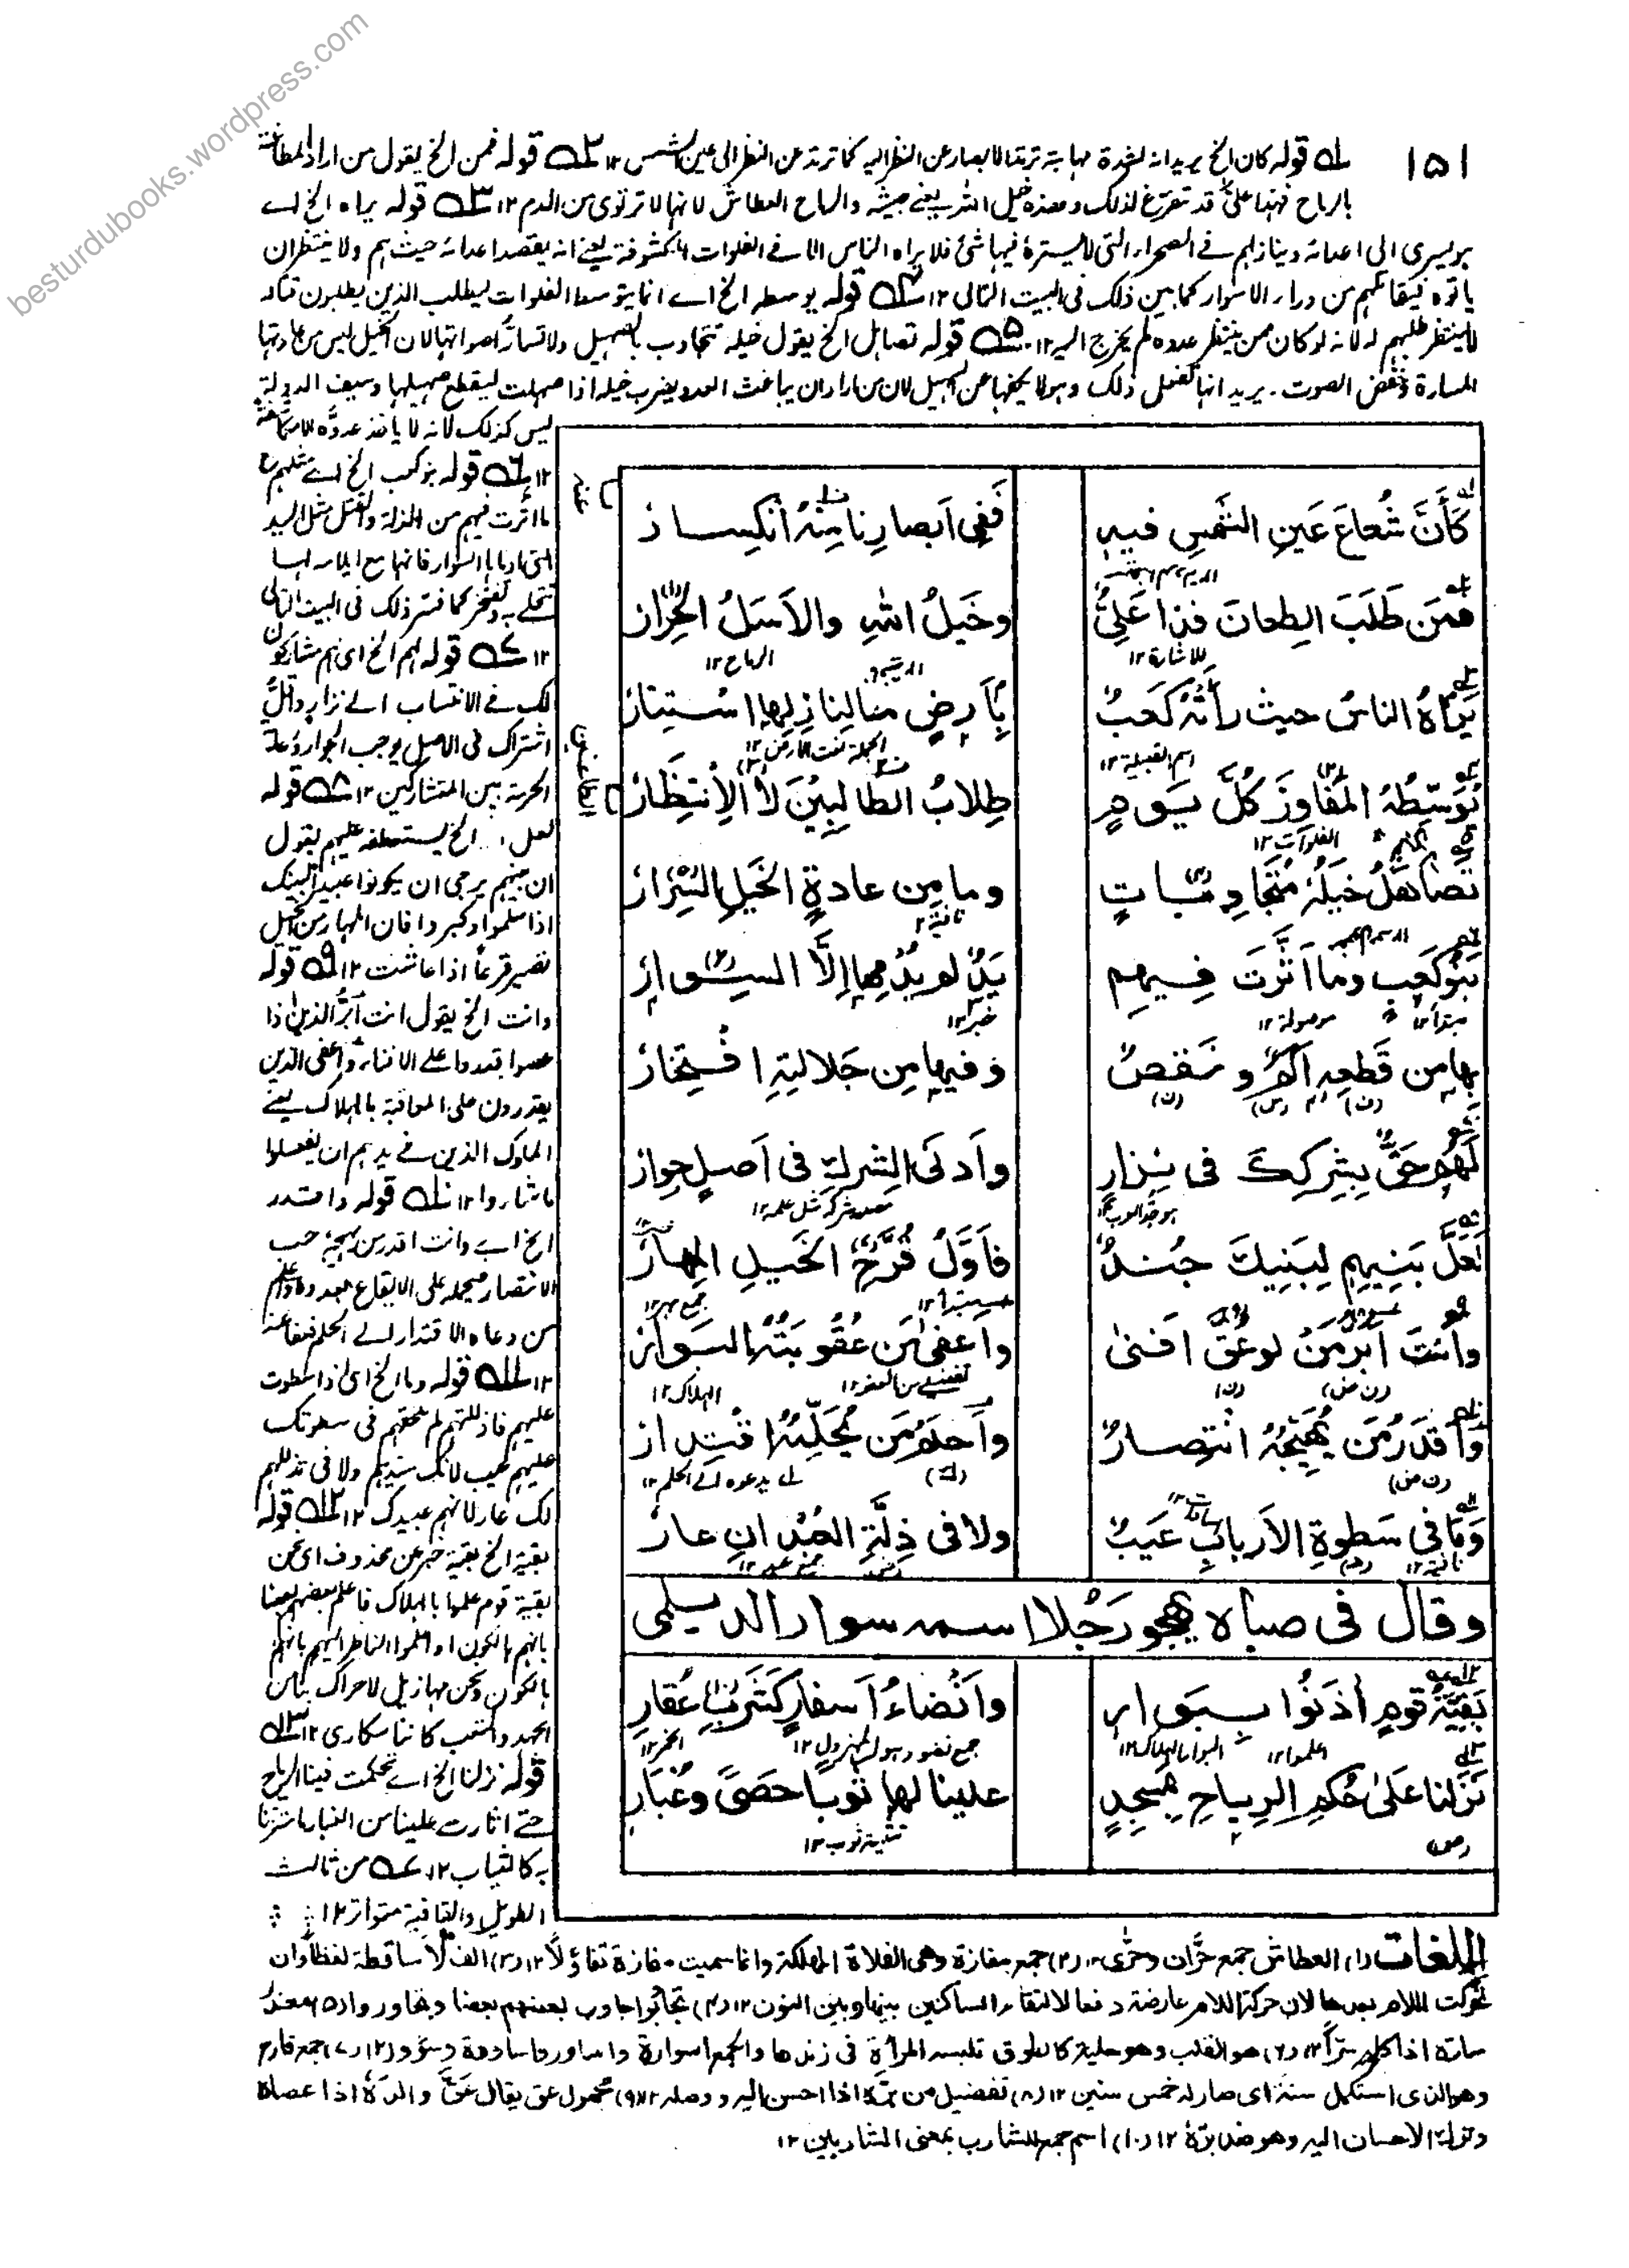 besturdubooks.wordpress.com
١٥١
قوله كان الخ يريد انه لشدة مهابته ترتد الابصار عن النظر اليه كما ترتد عن النظر الى عين الشمس ١٢ قوله فمن الخ يقول من اراد المطاعنة
بالرماح فهذا علي قد تفرغ لذلك وهذه خيل الله يعني جيشه والرماح العطاش لانها لا ترتوي من الدم ١٢ قوله يراه الخ اے
هو يسرى الى اعدائه وينازلهم في الصحراء التي لا يستره فيها شئ فلا يراه الناس الا في الفلوات المكشوفة يعني انه يقصد اعدائه حيث هم ولا ينتظران
ياتوه فيقاتلهم من وراء الاسوار كما بين ذلك في البيت التالي ١٢ قوله يوسطه الخ اے انما يتوسط الفلوات ليطلب الذين يطلبون قتاله
لا لينتظر طلبهم له لانه لو كان ممن ينتظر عدوه لم يخرج اليه ١٢ قوله تصاهل الخ يقول خيله تتجاوب بالصهيل ولا تسار اصواتها لان الخيل ليس من عادتها
المسارة وخفض الصوت۔ يريد انها تفعل ذلك وهو لا يكفها عن الصهيل لان من اراد ان يباغت العدو يضرب خيله اذا صهلت ليقطع صهيلها وسيف الدولة
ليس كذلك لانه لا ياخذ عدوه
١٢ قوله بنو كعب الخ اے مثلهم
ما اثرت فيهم من المذلة والقتل مثل اليد
التي ادماها السوار فانها مع ايلامه لها
تتحلى به وتفتخر كما فسر ذلك في البيت التالي
١٢ قوله لهم الخ اى هم مشاركو
لك في الانتساب الى نزار واقل
اشتراك في الاصل يوجب الجوار
الحرمة بين المتشاركين ١٢ قوله
لعل الخ يستعطفه عليهم يقول
ان بنيهم يرجى ان يكونوا عبيدا لبنيك
اذا سلموا وكبروا فان المهار من الخيل
تصير قرحا اذا عاشت ١٢ قوله
وانت الخ يقول انت ابر الذين اذا
عصوا قدروا على الافناء واعفى الذين
يقدرون على المعاقبة بالهلاك يعني
الملوك الذين في يدهم ان يفعلوا
ما شاروا ١٢ قوله واقدر
الخ اے وانت اقدر من يهيجه حب
الانتصار فيحمله على الايقاع بعدوه
من دعاه الاقتدار الى الحلم
١٢ قوله وما الخ اى اذا سطوت
عليهم فاذللتهم لم يلحقهم في سطوتك
عليهم عيب لانك سيدهم ولا في تذللهم
لك عار لانهم عبيدك ١٢ قوله
بقية الخ بقية خبر عن محذوف اى نحن
بقية قوم علموا بالهلاك فاعلم بعضهم بعضا
بانهم هالكون او اعلموا الناظر اليهم بانهم
هالكون ونحن مهازيل لا حراك بنا من
الجهد والتعب كاننا سكارى ١٢
قوله نزلنا الخ اے تحكمت فينا الرياح
حتى اثارت علينا من الغبار ما سترنا
به كالثياب ١٢ من ثالث
الطويل والقافية متواتر ١٢
كَأَنَّ شُعاعَ عَينِ الشَّمسِ فيهِ فَفِي اَبصارِنا مِنْهُ اِنكِسارُ
فمَن طَلَبَ الطِعانَ فذا عَلِيٌّ وخَيلُ اللهِ والاَسَلُ الحِرارُ
للاشارة ١٢ الرماح ١٢
يَراهُ الناسُ حيث رأَتْهُ كَعبٌ بِأَرضٍ ما لِنازِلِها اسْتِتارُ
اسم القبيلة ١٢ الجملة نعت لارض ١٢
يُوَسِّطُهُ المَفاوِزَ كُلَّ يَومٍ طِلابُ الطالِبِيْنَ لاَ الاِنتِظَارُ
الفلوات ١٢
تَصاهَلُ خَيلُهُ مُتَجاوِباتٍ وما مِن عادةِ الخَيلِ السِّرارُ
نافية ١٢
بَنُو كَعبٍ وما اَثَّرتَ فِيهِم يَدٌ لم يُدْمِها إلَّا السِوارُ
مبتدأ ١٢ موصولة ١٢ خبر ١٢
بها مِن قَطعِهِ اَلَمٌ ونَقصٌ وفيها مِن جَلالتِهِ افْتِخارُ
لَهُم حَقٌّ بِشِركِكَ في نِزارٍ واَدنَى الشِركِ في اَصلٍ جِوارُ
لعَلَّ بَنِيهِمِ لِبَنِيكَ جُندٌ فاَوَّلُ قُرَّحِ الخَيلِ المِهارُ
مبتدأ ١٢ جمع مهر ١٢
واَنتَ اَبَرُّ مَن لو عُقَّ اَفنىٰ واَعفىٰ مَن عُقُوبَتُهُ البَوارُ
تفضيل من العفو ١٢ الهلاك ١٢
واَقدَرُ مَن يُهَيِّجُهُ انْتِصارُ واَحلَمُ مَن يُحَلِّمُهُ اقْتِدارُ
اے يدعوه الى الحلم ١٢
وَما في سَطوةِ الاَربابِ عَيبٌ ولا في ذِلَّةِ العُبْدانِ عارُ
نافية ١٢ جمع عبد ١٢
وقال في صباه يهجو رَجُلا اسمه سوار الديلمي
بَقِيَّةُ قومٍ اٰذَنُوا بِبَوارِ واَنْضاءُ اَسفارٍ كَشَربِ عُقارِ
اعلموا ١٢ البوار الهلاك ١٢ جمع نضو وهو المهزول ١٢ الخمر ١٢
نَزَلنا عَلىٰ حُكمِ الرِياحِ بِمَسجِدٍ علينا لها ثَوبا حَصىً وغُبَارِ
تثنية ثوب ١٢
اللغات (١) العطاش جمع حرّان وحرّى ١٢ (٢) جمع مفازة وهي الفلاة المهلكة وانما سميت مفازة تفاؤلًا ١٢ (٣) الف لا ساقطة لفظا وان
تحركت اللام بعدها لان حركة اللام عارضة دفعا لالتقاء الساكنين بينها وبين النون ١٢ (٤) تجاوبوا جاوب بعضهم بعضا وتحاوروا ١٢ (٥) مصدر
سارّه اذا كلمه سرّاً ١٢ (٦) هو القلب وهو حلية كالطوق تلبسه المرأة في زندها والجمع اسورة واساور واساورة وسُوُر ١٢ (٧) جمع قارح
وهو الذي استكمل سنة اى صار له خمس سنين ١٢ (٨) تفضيل من برّه اذا احسن اليه ووصله ١٢ (٩) مجهول عق يقال عقّ والدهٗ اذا عصاه
وترك الاحسان اليه وهو ضد برّهٗ ١٢ (١٠) اسم جمع للشارب بمعنى الشاربين ١٢